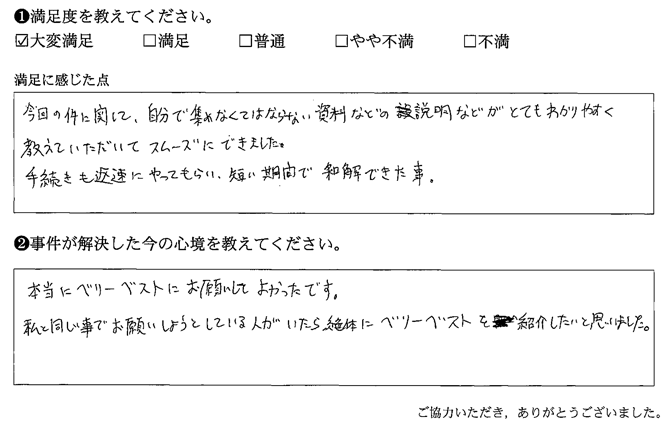 ❶満足度を教えてください。
☑大変満足 □満足 □普通 □やや不満 □不満
満足に感じた点
今回の件に関して、自分で集めなくてはならない資料などの説明などがとてもわかりやすく
教えていただいてスムーズにできました。
手続きも迅速にやってもらい、短い期間で和解できた事。
❷事件が解決した今の心境を教えてください。
本当にベリーベストにお願いしてよかったです。
私と同じ事でお願いしようとしている人がいたら絶体にベリーベストを紹介したいと思いました。
ご協力いただき，ありがとうございました。